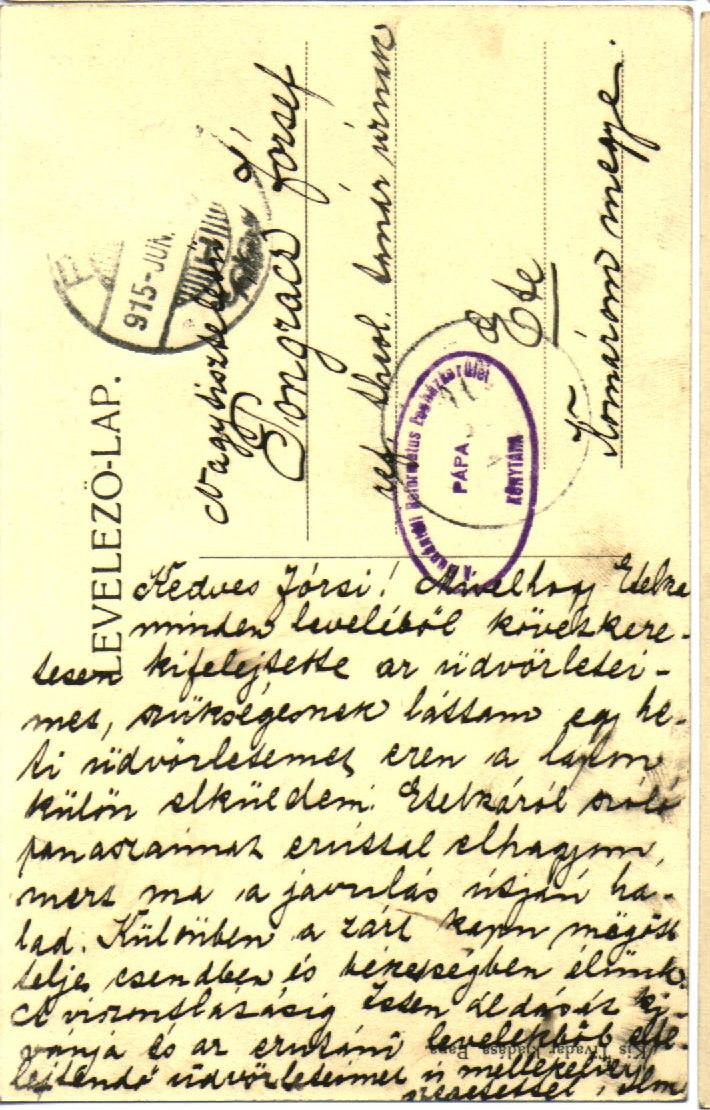 LEVELEZŐ-LAP.
915-JUN.
Nagytiszteletű
Pongrácz József
ref. theol. tanár úrnak
Ete
Komárom megye.
A Dunántúli Református Egyházkerület
PÁPA
KÖNYVTÁRA
Kedves Józsi! Mivelhogy Etelka
minden leveléből következe-
tesen kifelejtette az üdvözletei-
met, szükségesnek láttam egy he-
ti üdvözletemet ezen a lapon
külön elküldeni. Etelkáról szóló
panaszaimat ezúttal elhagyom,
mert ma a javulás útján ha-
lad. Különben a zárt kapu mögött
telje csendben és békességben élünk.
A viszontlátásig Isten áldását kí-
vánja és az ezutáni levelekből elfe-
lejtendő üdvözleteimet is mellékelve
Kis Tivadar kiadása Pápa